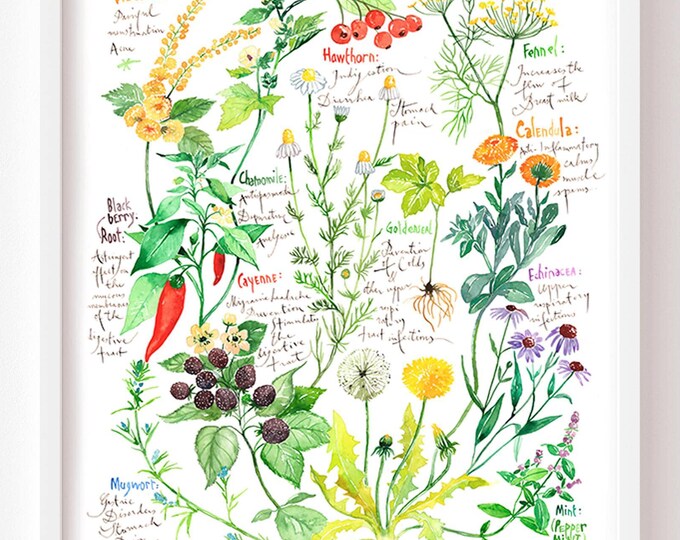 Painful
menstruation
Acne
Hawthorn:
Indigestion
Diarrhea
Stomach
pain
Fennel:
Increases the
flow of
Breast milk
Calendula:
Anti-Inflammatory
calms
muscle
spasms.
Chamomile:
Antispasmodic
Depurative
Analgesic
Black
berry.
Root:
Astringent
effect on
the
mucous
membranes
of the
digestive
tract
Goldenseal
Prevention
of Colds
other
tract infections
Cayenne:
Migraine headache
Prevention
Stimulate
the
digestive
tract
Echinacea:
upper
respiratory
infections
Mugwort:
Gastric
Disorders
Stomach
Mint:
(Pepper
Mint)